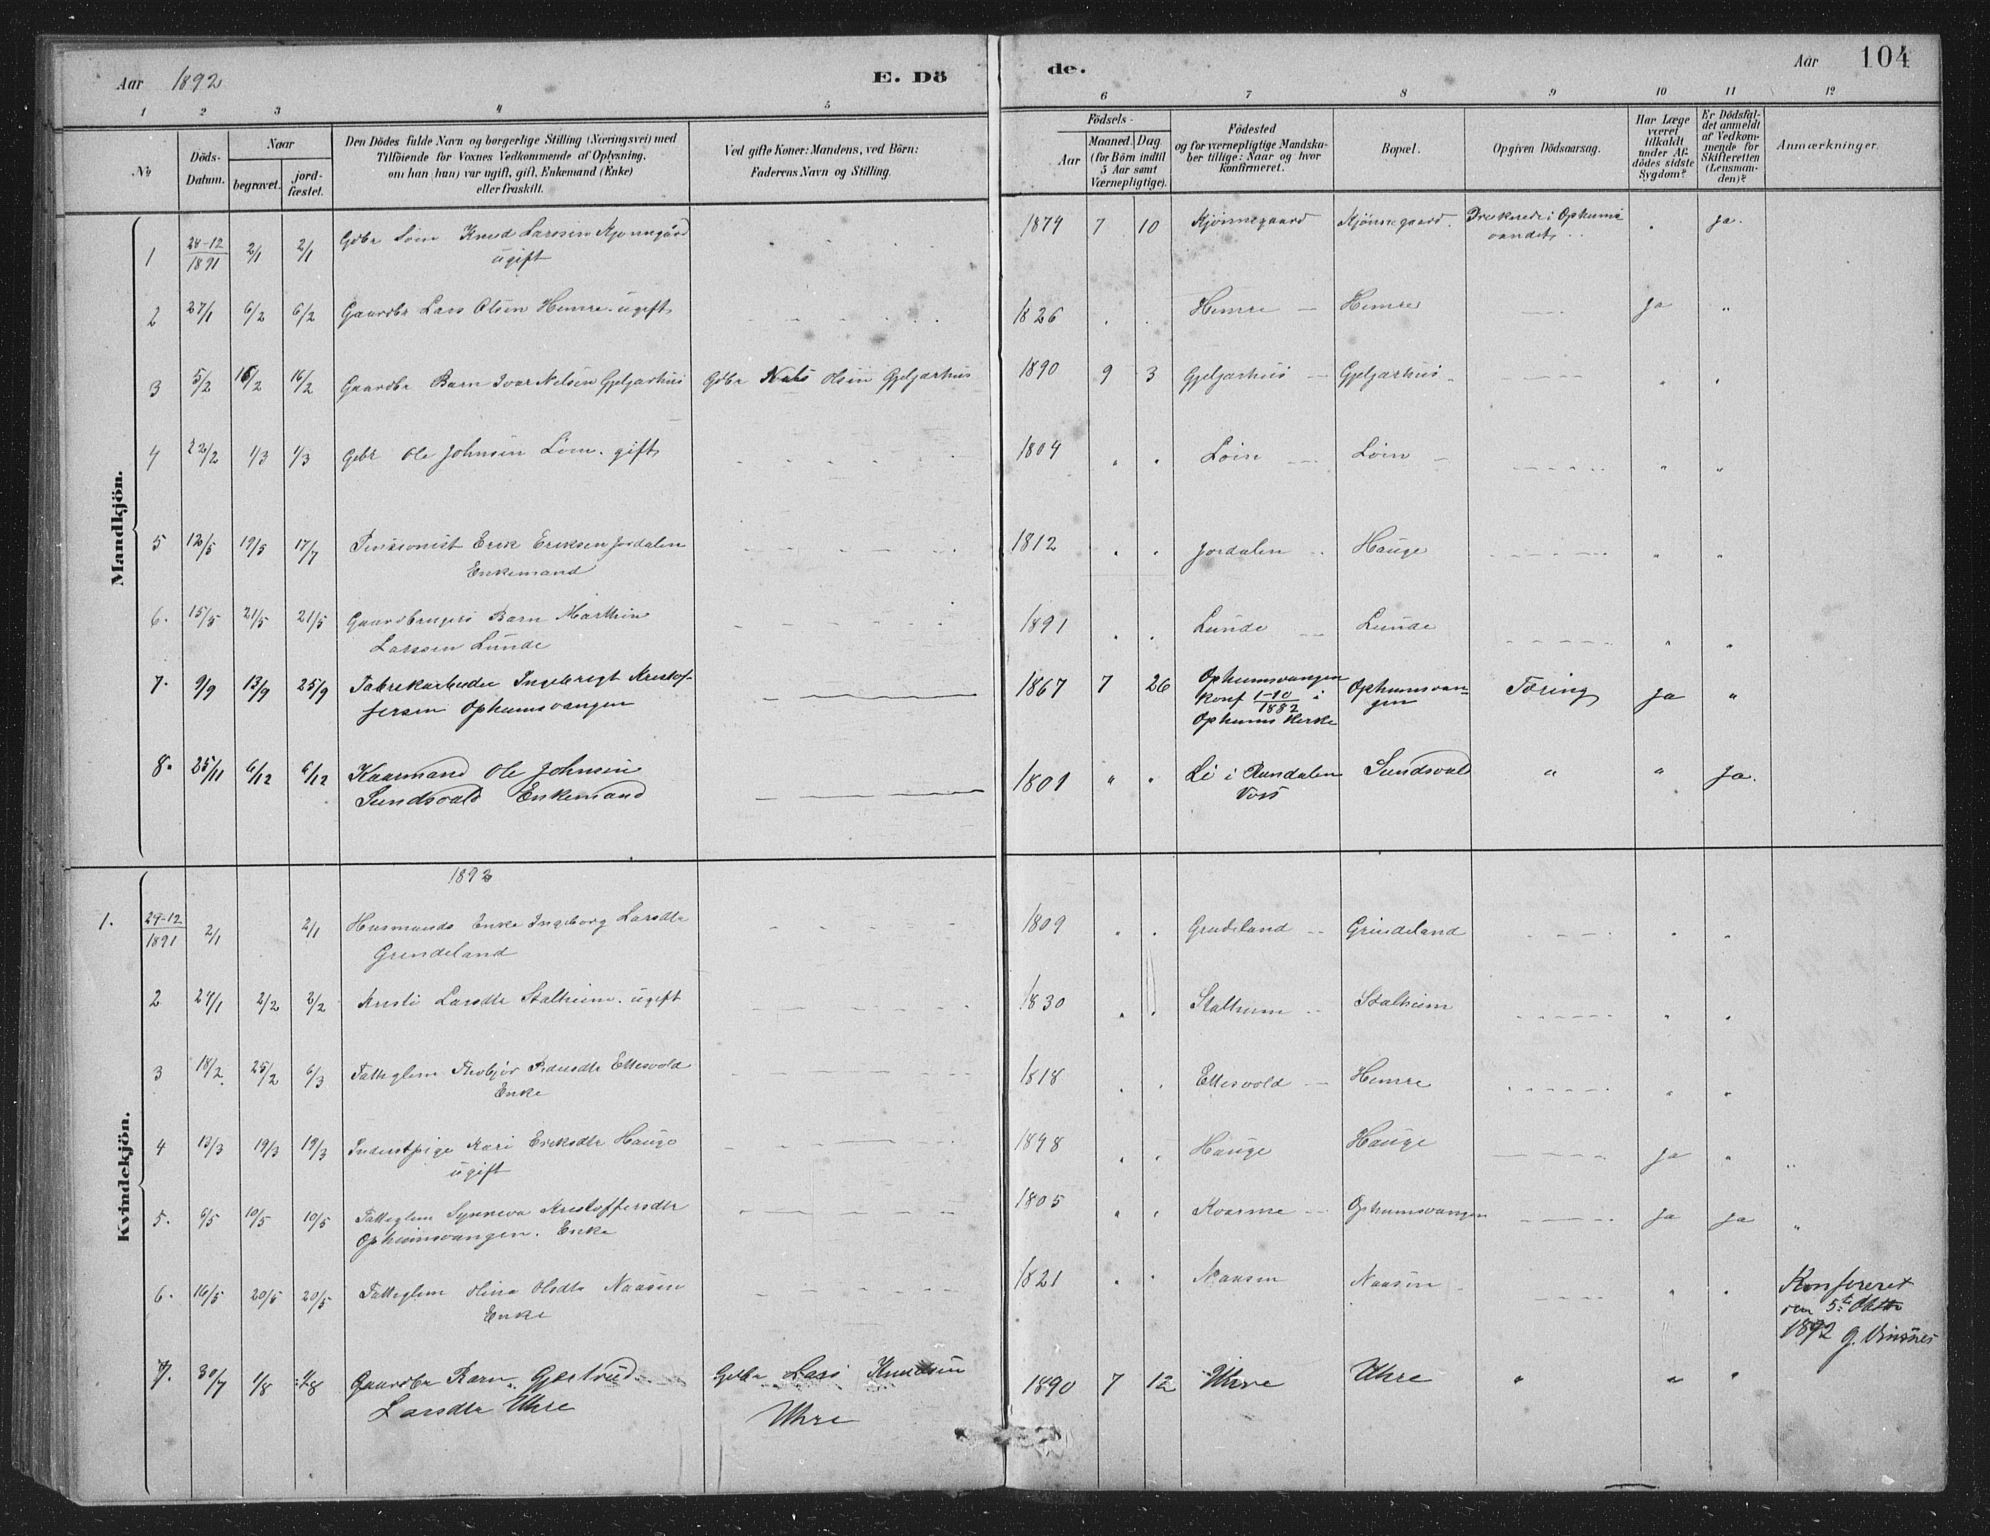 Aar 1892 E. Döde. Aar 104
1 2 3 4 5 6 7 8 9 10 11 12
No
Döds-Datum.
Naar
begravet.
jordfæstet.
Den Dödes fulde Navn og borgerlige Stilling (Næringsvei) med
Tilföiende for Voxnes Vedkommende af Oplysning,
om han (hun) var ugift, gift, Enkemand (Enke)
eller fraskilt.
Ved gifte Koner: Mandens, ved Börn:
Faderens Navn og Stilling.
Födsels-
Aar
Maaned. Dag
(for Börn indtil
5 Aar samt
Værnepligtige).
Födested
og for værnepligtige Mandskaber
tillige: Naar og hvor
konfirmeret.
Bopæl.
Opgiven Dödsaarsag.
Har Læge
været
tilkaldt
under Afdödes
sidste
Sygdom?
Er Dödsfaldet
anmeldt
af Vedkommende
for
Skifteretten
(Lensmanden)?
Anmærkninger.
Mandkjön.
1 28-12/1891 2/1 2/1 Gdbr Søn Knud Larssen Kjønnegård 1879 7 10 Kjønnegaard Kjønnegaard Druknede i Ophums ja.
ugift vandet
2 27/1 6/2 6/2 Gaardbr Lars Olsen Hemre. ugift 1826 Hemre Hemre Ja "
3 5/2 16/2 16/2 Gaardbr Barn Ivar Nelsen Gjeljarhus Gdbr Nels Olsen Gjeljarhus 1890 9 3 Gjeljarhus Gjeljarhus " "
4 22/2 1/3 1/3 Gdbr Ole Johnsen Løin. gift 1804 " " Løin Løin " "
5 12/5 19/5 17/7 Pensionist Erik Eriksen Jordalen 1812 " " Jordalen Hauge " "
Enkemand
6. 15/5 21/5 21/5 Gaardbrugers Barn Marthin 1891 " " Lunde Lunde " "
Larssen Lunde
7. 9/9 13/9 25/9 Fabrekarbeider Ingebrigt Kristof- 1867 7 26 Ophumsvangen Ophumsvan- Tæring Ja "
fersen Ophumsvangen konf 1-10/1882 i gen
Ophums Kerke
8. 25/11 6/12 6/12 Kaarmand Ole Johnsen 1801 " " Li i Rundalen Sundsvald " " Ja.
Sundsvald Enkemand Voss
Kvindekjön.
1892
1. 29-12/1891 2/1 2/1 Husmands Enke Ingeborg Larsdtr 1809 " " Grindeland Grindeland " "
Grendeland
2 27/1 2/2 2/2 Kristi Larsdtr Stalheim. ugift 1830 " " Stalheim Stalheim " "
3 18/2 25/2 6/3 Fattiglem Thobjør Pedersdtr Ettesvold 1818 " " Ettesvold Hemre " "
Enke
4 13/3 19/3 19/3 Inderstpige Kari Eriksdtr Hauge 1848 " " Hauge Hauge Ja " "
ugift
5. 6/5 10/5 10/5 Fattiglem Synneva Kristoffersdtr 1805 " " Kvarme Ophumsvangen Ja Ja "
Ophumsvangen. Enke
6. 16/5 20/5 20/5 Fattiglem Olina Olsdtr Naasen 1821 " " Naasen Naasen " " Konfereret
Enke den 5te Oktbr
1892 G. Vinsnes
7. 30/7 1/8 1/8 Gaardbr Barn. Gjertrud Gdbr Lars Knudsen 1890 7 12 Uhre Uhre " " "
Larsdtr Uhre Uhre